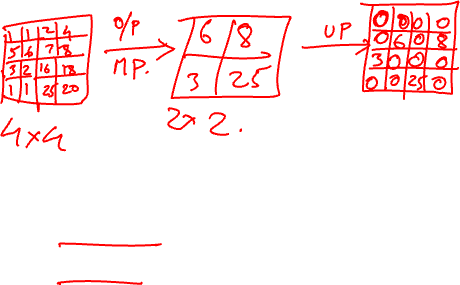 1 1 2 4
5 6 7 8
3 2 16 18
1 1 25 20
4x4
O/P
MP.
6 8
3 25
2x2.
UP
0 0 0 0
0 6 0 8
3 0 0 0
0 0 25 0